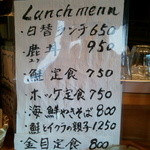 Lunch menu
・日替ランチ 650
・鹿丼 950
・鮭定食 750
・ホッケ定食 750
・海鮮やきそば 800
・鮭とイクラの親子 1250
・金目定食 800